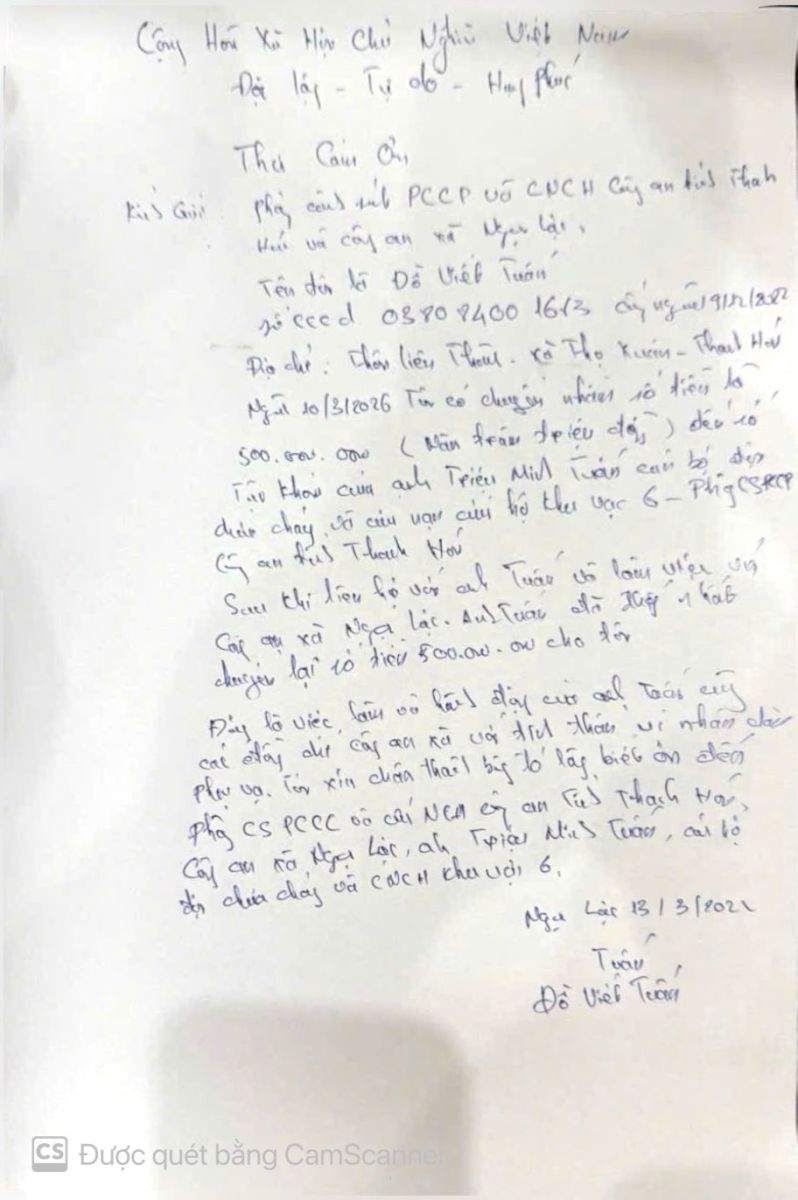 Cộng Hòa Xã Hội Chủ Nghĩa Việt Nam
Độc lập - Tự do - Hạnh phúc
Thư Cảm Ơn
Kính Gửi: Phòng cảnh sát PCCP và CNCH Công an tỉnh Thanh
Hoá và công an xã Ngọc Lặc,
Tên tôi là Đỗ Viết Tuấn
số cccd 0380 8400 1613 cấp ngày 19/12/2022
Địa chỉ: Thôn liên Thành - xã Thọ Xuân - Thanh Hoá
Ngày 10/3/2026 Tôi có chuyển nhầm số tiền là
500.000.000 (Năm trăm triệu đồng) đến số
Tài khoản của anh Triệu Minh Tuấn cán bộ đội
chữa cháy và cứu nạn cứu hộ khu vực 6 - Phòng CSPCCP
Công an tỉnh Thanh Hoá
Sau khi liên hệ với anh Tuấn và làm việc với
Công an xã Ngọc Lặc. Anh Tuấn đã
chuyển lại số tiền 500.000.000 cho tôi
Đây là việc làm và hành động của anh Tuấn cùng
các đồng chí công an xã với tinh thần vì nhân dân
phục vụ. Tôi xin chân thành bày tỏ lòng biết ơn đến
phòng CS PCCC và CNCH công an Tỉnh Thanh Hoá,
Công an xã Ngọc Lặc, anh Triệu Minh Tuấn, cán bộ
đội chữa cháy và CNCH khu vực 6.
Ngọc Lặc 13/3/202
Tuấn
Đỗ Viết Tuấn
CS Được quét bằng CamScanner